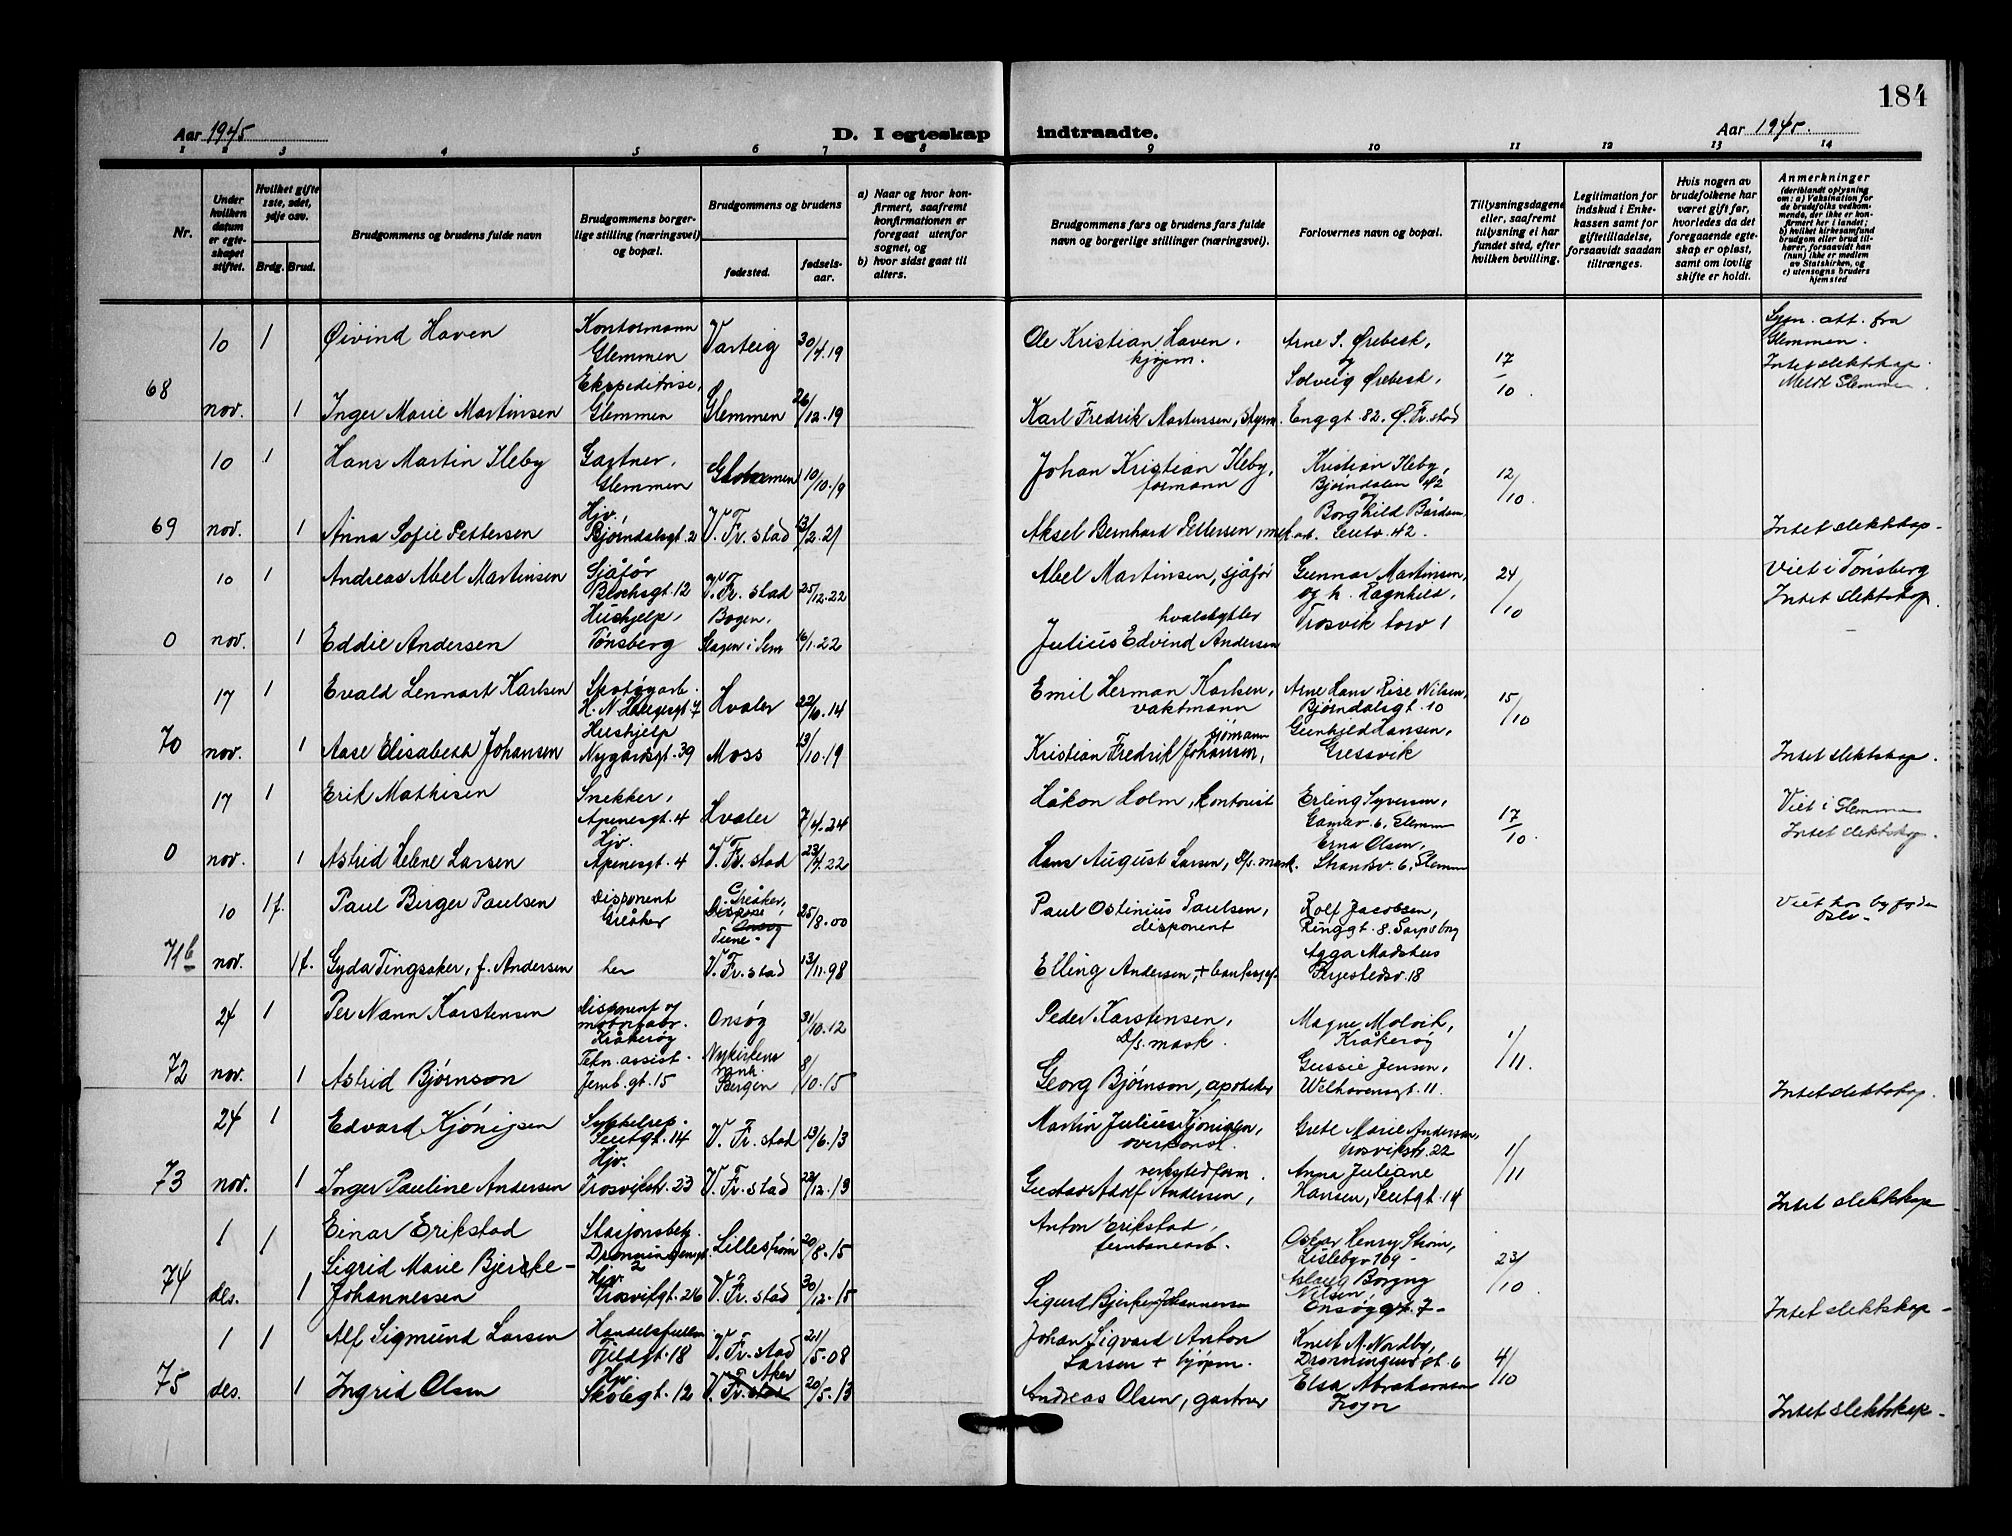 184
Aar 1945
D. I egteskap indtraadte.
Aar 1945.
1 2 3 4 5 6 7 8 9 10 11 12 13 14
Nr.
Under hvilken datum er egteskapet stiftet.
Hvilket gifte 1ste, 2det, 3dje osv.
Brdg. Brud.
Brudgommens og brudens fulde navn
Brudgommens borgerlige stilling (næringsvei) og bopæl.
Brudgommens og brudens
fødested.
fødselsaar.
a) Naar og hvor konfirmert, saafremt konfirmationen er foregaat utenfor sognet, og
b) hvor sidst gaat til alters.
Brudgommens fars og brudens fars fulde navn og borgerlige stillinger (næringsvei).
Forlovernes navn og bopæl.
Tillysningsdagene eller, saafremt tillysning ei har fundet sted, efter hvilken bevilling.
Legitimation for indskud i Enkekassen samt for giftetilladelse, forsaavidt saadan tiltrænges.
Hvis nogen av brudefolkene har været gift før, hvorledes da det foregaaende egteskap er opløst, samt om lovlig skifte er holdt.
Anmerkninger
(deriblandt oplysning om: a) Vaksination for de brudefolks vedkommende, der ikke er konfirmert her i landet; b) hvilket kirkesamfund brudgom eller brud tilhører, forsaavidt han (hun) ikke er medlem av Statskirken, og c) utensogns bruders hjemsted
10 1 Øivind Haven Kontormann Glemmen Varteig 30/4.19 Ole Kristian Haven, kjøpm. Arne S. Ørebeck, og Solveig Ørebeck, 17/10 att. fra Glemmen. Intet slektskap. Meldt Glemmen
68 nov. 1 Inger Marie Martinsen Ekspeditrise, Glemmen Glemmen 26/12.19 Karl Fredrik Martinsen, styrm. Enggt. 82. Ø. Fr.stad
10 1 Hans Martin Ileby Gartner, Glemmen Glemmen 10/10.19 Johan Kristian Ileby, formann Kristian Ileby, Bjørndalen 42 og Borghild Bårdsen 12/10
69 nov. 1 Anna Sofie Pettersen Hjv. Bjørndalsgt. 2 V. Fr.stad 13/2.21 Aksel Bernhard Pettersen, mek. arb. Seutv. 42. Intet slektskap -
10 1 Andreas Abel Martinsen Sjåfør Blochsgt. 12 V. Fr.stad 25/12.22 Abel Martinsen, sjåfør Gunnar Martinsen, og h. Ragnhild, Trosvik torv 1 24/10 Viet i Tønsberg Intet slektskap.
0 nov. 1 Eddie Andersen Hushjelp, Tønsberg Bogen, Slagen i Sem 16/1.22 hvalskytter Julius Edvind Andersen
17 1 Evald Lennart Karlsen Skotøyarb. H. N. Haugesgt. 7 Hvaler 22/6.14 Emil Herman Karlsen, vaktmann Arne Hans Rise Nilsen, Bjørndalsgt. 10 15/10
70 nov. 1 Aase Elisabeth Johansen Hushjelp Nygårdsgt. 39 Moss 13/10.19 sjømann Kristian Fredrik Johansen, Gunhild Hansen, Gressvik Intet slektskap.
17 1 Erik Mathisen Snekker, Apenesgt. 4 Hvaler 7/4.24 Håkon Holm, kontorist Erling Syversen, Gamlev. 6, Glemm 17/10 Viet i Glemmen Intet slektskap.
0 nov. 1 Astrid Helene Larsen Hjv. Apenesgt. 4 V. Fr.stad 23/4.22 Hans August Larsen, D/s. mask. Erna Olsen, Strandv. 6, Glemm
10 1 f. Paul Birger Paulsen Disponent Greåker Greåker, Tune. 25/8.00 Paul Ostinius Paulsen, disponent Rolf Jacobsen, Ringgt. 8. Sarpsborg Viet hos byfogden Oslo.
71b nov. 1 f. Gyda Tingsaker, f. Andersen her V. Fr.stad 13/11.98 Elling Andersen, + banksjef. Agga Madshus 18
24 1 Per Nann Karstensen Disponent og motorfabr. Kråkerøy Onsøy 31/10.12 Peder Karstensen, D/s. mask. Magne Molvik, Kråkerøy 1/11.
72 nov. 1 Astrid Bjørnson Tekn. assist. Jernb.gt. 15 Nykirkens menh. Bergen 8/10.15 Georg Bjørnson, apoteker Gussie Jensen, Welhavensgt. 11. Intet slektskap.
24 1 Edvard Kjønigsen Sykkelrep. Seutgt. 14 V. Fr.stad 13/6.13 Martin Julius Kjønigsen, overkonst. Grete Marie Andersen, Trosvikstr. 22 1/11
73 nov. 1 Inger Pauline Andersen Hjv. Trosvikstr. 23 V. Fr.stad 22/12.13 verkstedform. Gustav Adolf Andersen, Anna Juliane Hansen, Seutgt. 14 Intet slektskap
1 1 Einar Erikstad Stasjonsbetj. Dronningensgt. 2 Lillestrøm 20/8.15 Anton Erikstad, jernbanearb. Oskar Henry Strøm, Lislebyv 109 - 23/10
74 des. 1 Sigrid Marie Bjerke-Johannessen Hjv. Trosvikgt. 26 V. Fr.stad 30/12.15 Sigurd Bjerke-Johannessen Aslaug Borgny Nilsen, Onsøygt. 7 - Intet slektskap -
1 1 Alf Sigmund Larsen Handelsfullm. Fjeldgt. 18 V. Fr.stad 21/5.08 Johan Sigvard Anton Larsen + kjøpm. Knut M. Nordby, Dronningensgt. 6 4/10
75 des. 1 Ingrid Olsen Hjv. Skolegt. 12 V. Fr.stad Aker 20/5.13 Andreas Olsen, gartner Elsa Abrahamsen Frogn Intet slektskap -